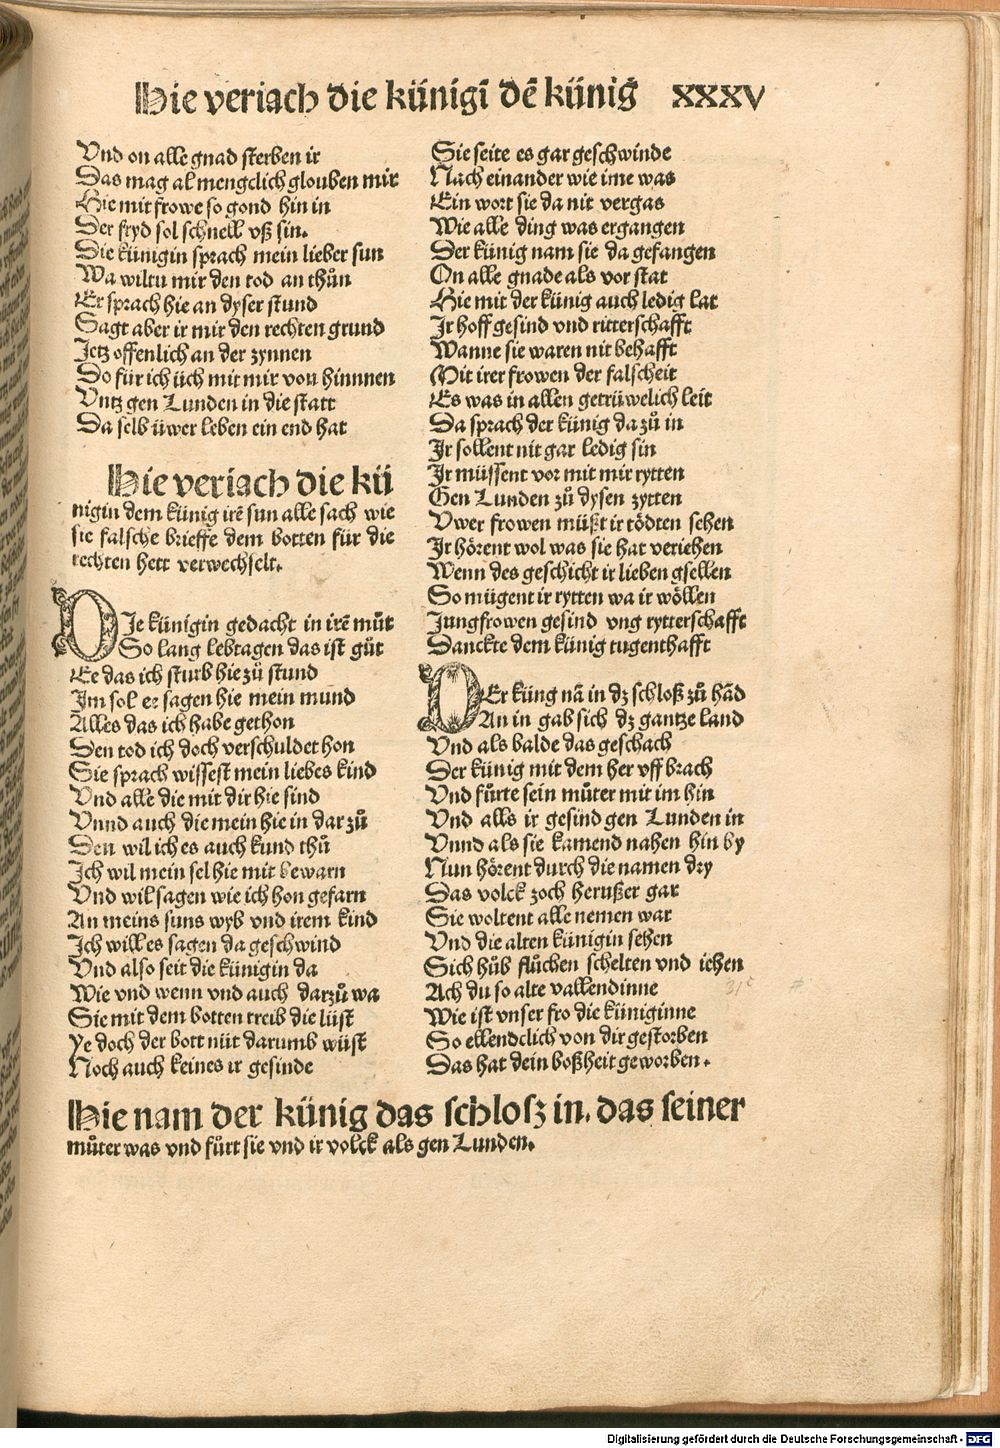 Hie veriach die künigī dē künig xxxv
Vnd on alle gnad sterben ir
Das mag al mengclich glouben mir
Hie mit frowe so gond hin in
Der fryd sol schnell vß sin.
Die künigin sprach mein lieber sun
Wa wiltu mir den tod an thůn
Er sprach hie an dyser stund
Sagt aber ir mir den rechten grund
Jetz offenlich an der zynnen
So für ich üch mit mir von hinnnen
Vntz gen Lunden in die statt
Da selb üwer leben ein end hat
Hie veriach die kü
nigin dem künig irē sun alle sach wie
sie falsche brieffe dem botten für die
rechten hett verwechselt.
DJe künigin gedacht in irē můt
So lang lebtagen das ist gůt
Ee das ich sturb hie zů stund
Im sol er sagen hie mein mund
Alles das ich habe gethon
Den tod ich doch verschuldet hon
Sie sprach wissest mein liebes kind
Vnd alle die mit dir hie sind
Vnnd auch die mein hie in dar zů
Den wil ich es auch kund thů
Ich wil mein sel hie mit bewarn
Vnd wil sagen wie ich hon gefarn
An meins suns wyb vnd irem kind
Ich will es sagen da geschwind
Vnd also seit die künigin da
Wie vnd wenn vnd auch darzů wa
Sie mit dem botten treib die lüst
Ye doch der bott nüt darumb wüst
Noch auch keines ir gesinde
Sie seite es gar geschwinde
Nach einander wie ime was
Ein wort sie da nit vergas
Wie alle ding was ergangen
Der künig nam sie da gefangen
On alle gnade als vor stat
Hie mit der künig auch ledig lat
Jr hoff gesind vnd ritterschafft
Wanne sie waren nit behafft
Mit irer frowen der falscheit
Es was in allen getrüwelich leit
Da sprach der künig da zů in
Jr sollent nit gar ledig sin
Jr müssent vor mit mir rytten
Gen Lunden zů dysen zytten
Vwer frowen müßt ir tödten sehen
Jr hörent wol was sie hat veriehen
Wenn des geschicht ir lieben gsellen
So mügent ir rytten wa ir wöllen
Jungfrowen gesind vng rytterschafft
Danckte dem künig tugenthafft
DEr küng nā in dz schloß zů hād
An in gab sich dz gantze land
Vnd als balde das geschach
Der künig mit dem her vff brach
Vnd fůrte sein můter mit im hin
Vnd alls ir gesind gen Lunden in
Vnnd als sie kamend nahen hin by
Nun hörent durch die namen dry
Das volck zoch herußer gar
Sie woltent alle nemen war
Vnd die alten künigin sehen
Sich hůb flůchen schelten vnd iehen
Ach du so alte vallendinne
Wie ist vnser fro die küniginne
So ellendclich von dir gestorben
Das hat dein boßheit geworben.
Hie nam der künig das schlosz in. das seiner
můter was vnd fůrt sie vnd ir volck als gen Lunden.
Digitalisierung gefördert durch die Deutsche Forschungsgemeinschaft - DFG